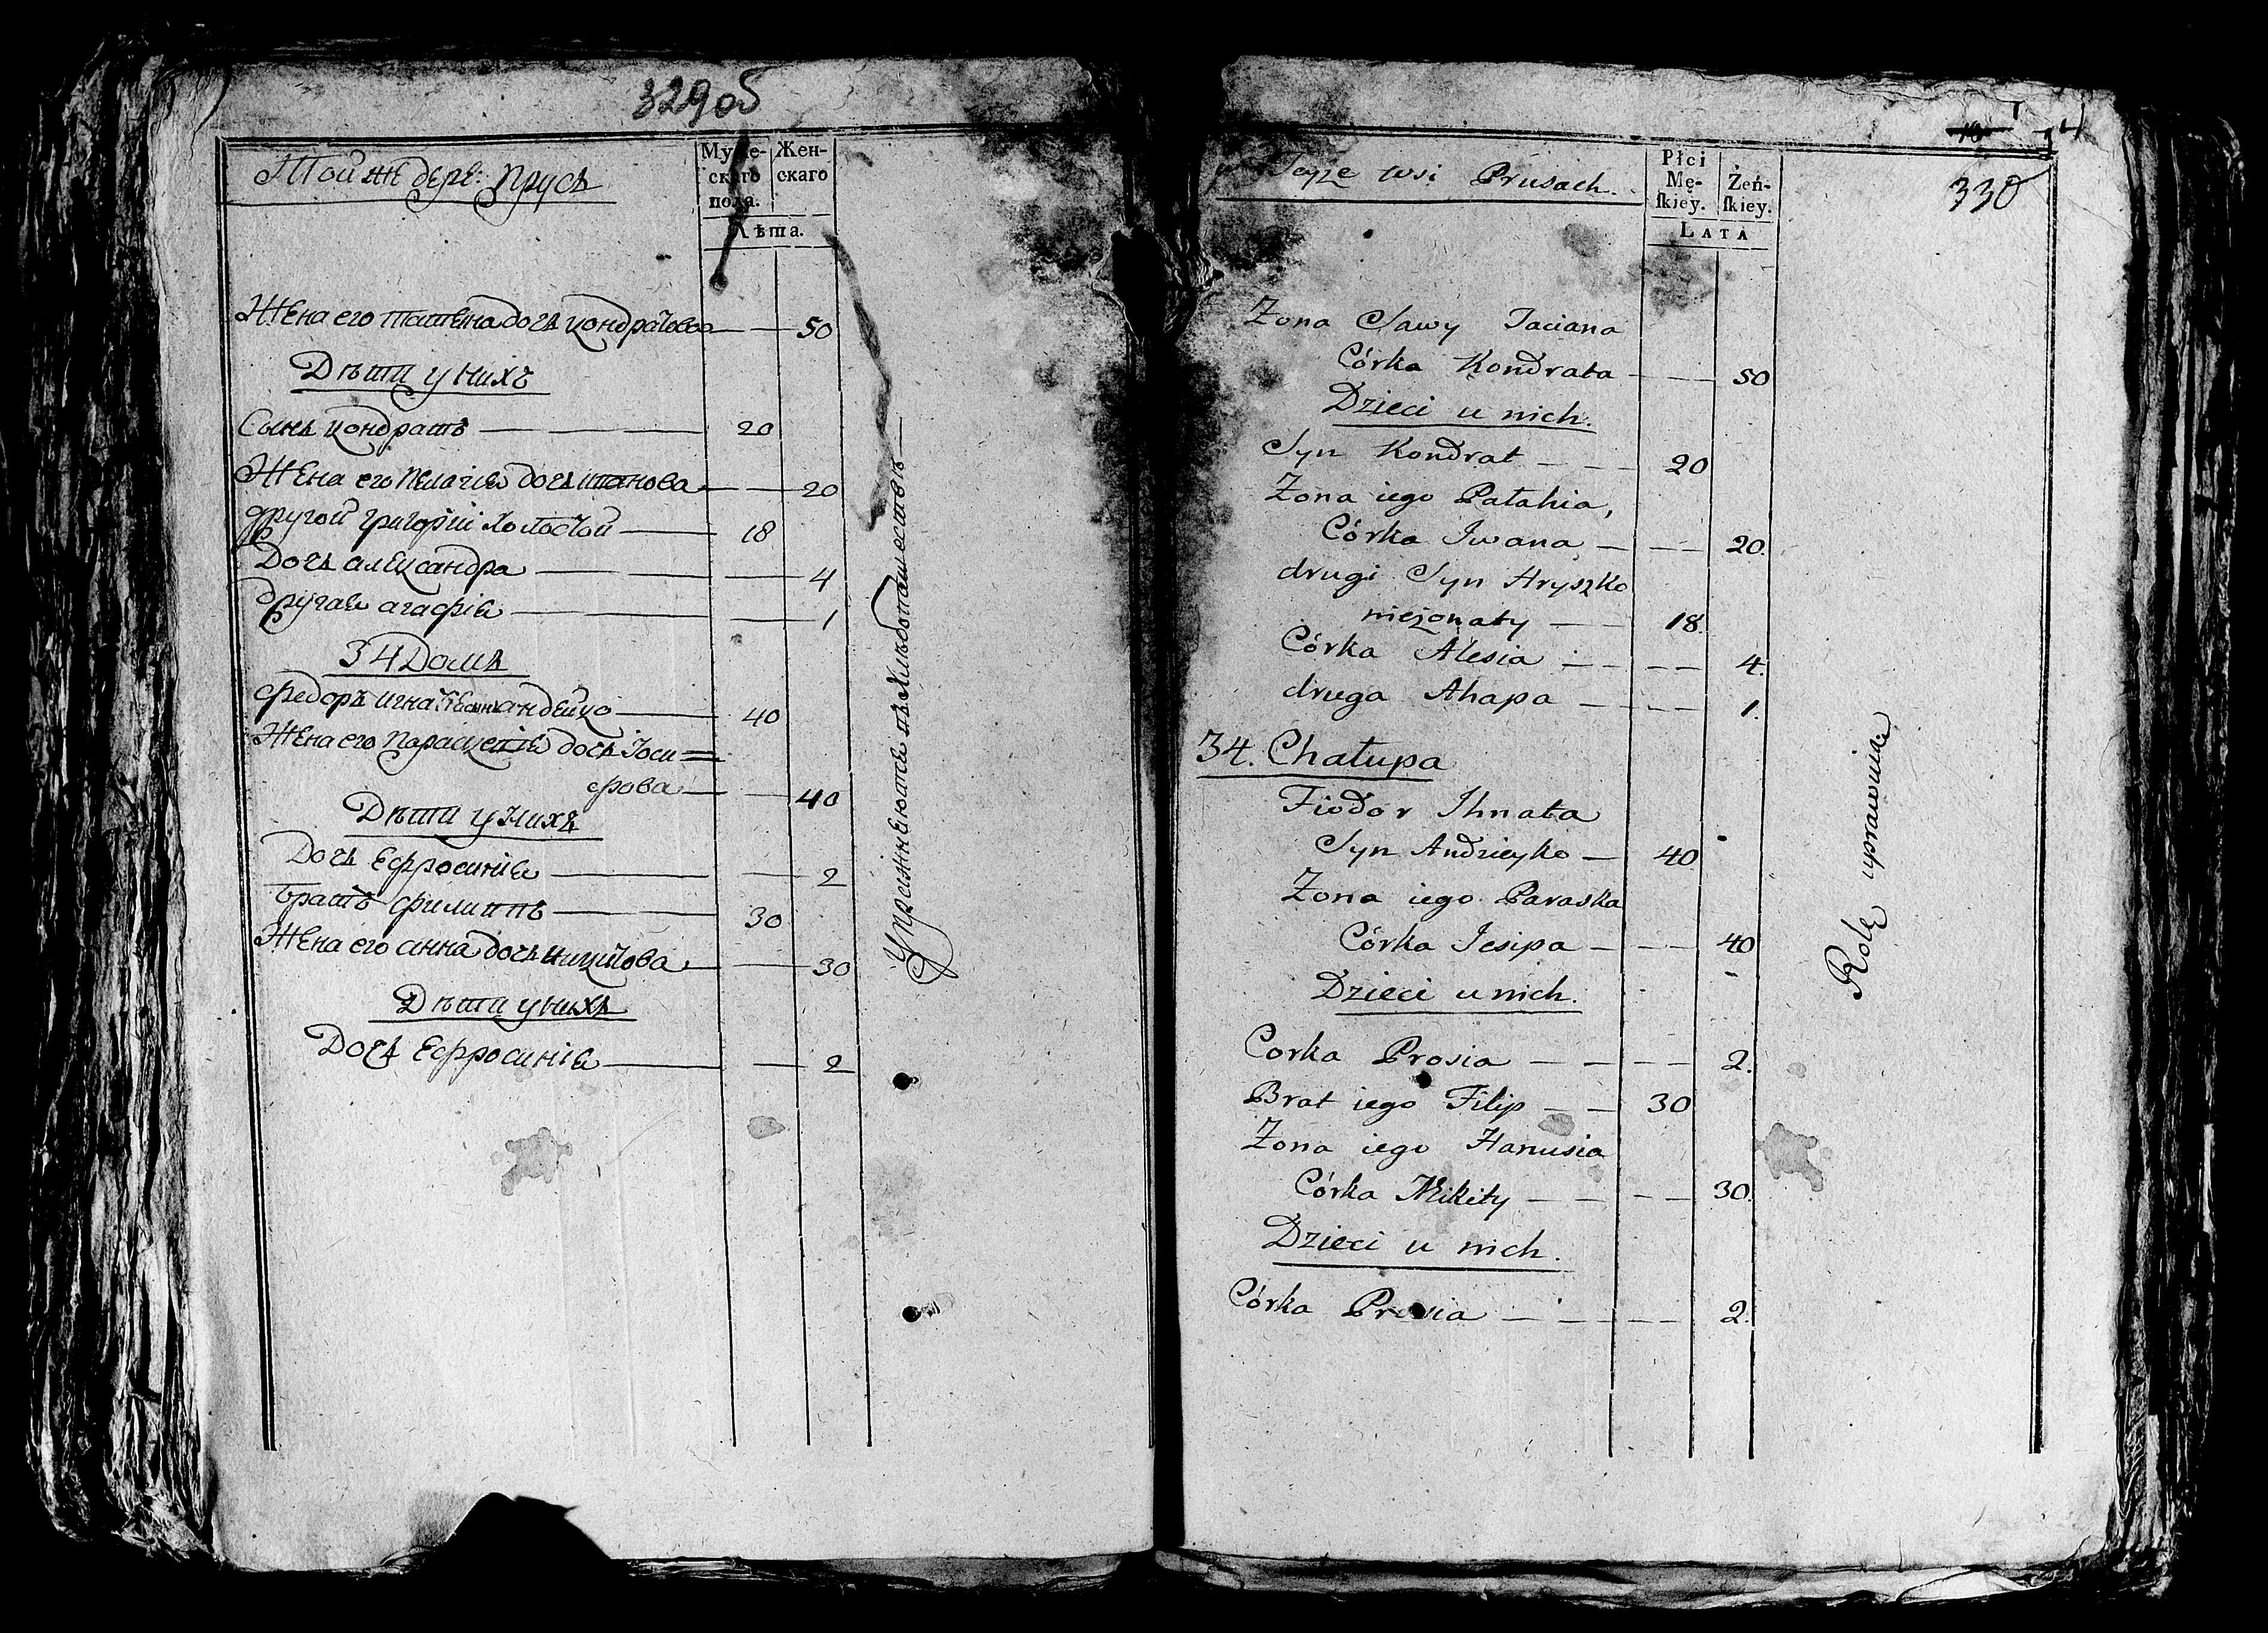 329об
Той же дере: Прусъ
Муже-
скаго
пола.
Жен-
скаго
Лѣта.
Жена его татьяна дочь кондратова — — 50
Дѣти у нихъ
Сынъ кондратъ — 20
Жена его Пелагия дочь иванова — — 20
другой григорій холостой — 18
Дочь александра — — 4
другая агафія — — 1
34 Домъ
федоръ игнатовъ сынъ андейко — 40
Жена его Параскевія дочь Іоси=
фова — — 40
Дѣти у нихъ
Дочь Ефросинія — — 2
братъ филиппъ — 30
Жена его анна дочь никитова — — 30
Дѣти у нихъ
Дочь Ефросинія — — 2
Упражняются въ хлѣбопашествѣ —
330
Teyże wsi Prusach.
Płci
Mę-
skiey.
Żeń-
skiey.
LATA
Żona Sawy Taciana
Córka Kondrata — — 50
Dzieci u nich.
Syn Kondrat — — 20
Żona iego Pałahia,
Córka Iwana — — 20.
drugi Syn Hryszko
nieżonaty — 18.
Córka Alesia — — 4.
druga Ahapa — — 1.
34. Chałupa
Fiodor Ihnata
Syn Andzieyko — 40
Żona iego Paraska
Córka Iesipa — — 40
Dzieci u nich.
Corka Prosia — — 2.
Brat iego Filip — — 30
Żona iego Hanusia
Córka Mikity — — 30.
Dzieci u nich.
Córka Prosia — — 2.
Rolę uprawuią.